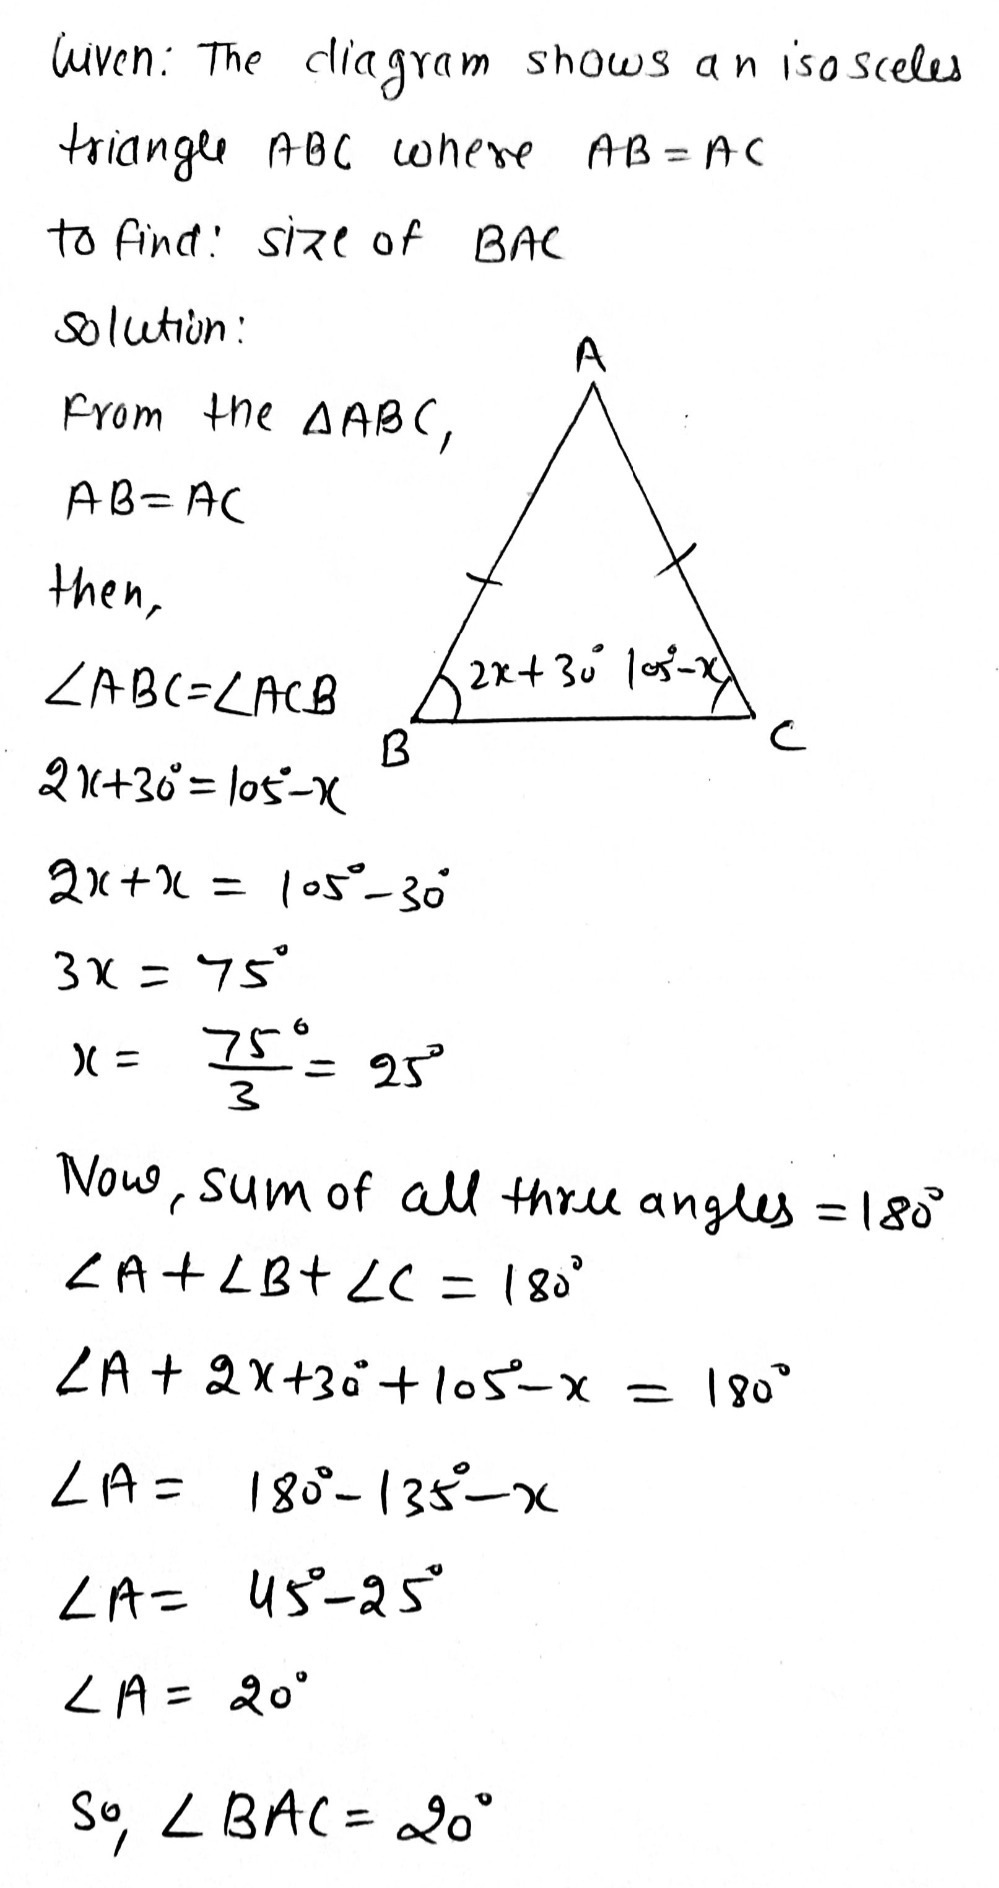 Given: The diagram shows an isosceles
triangle ABC where AB = AC
to find: size of BAC
solution:
From the ΔABC,
AB = AC
then,
∠ABC = ∠ACB
2x+30° = 105°-x
2x+x = 105°-30°
3x = 75°
x = 75°/3 = 25°
A
2x+30° 105°-x
B
C
Now, sum of all three angles = 180°
∠A + ∠B + ∠C = 180°
∠A + 2x+30° + 105°-x = 180°
∠A = 180°-135°-x
∠A = 45°-25°
∠A = 20°
So, ∠BAC = 20°